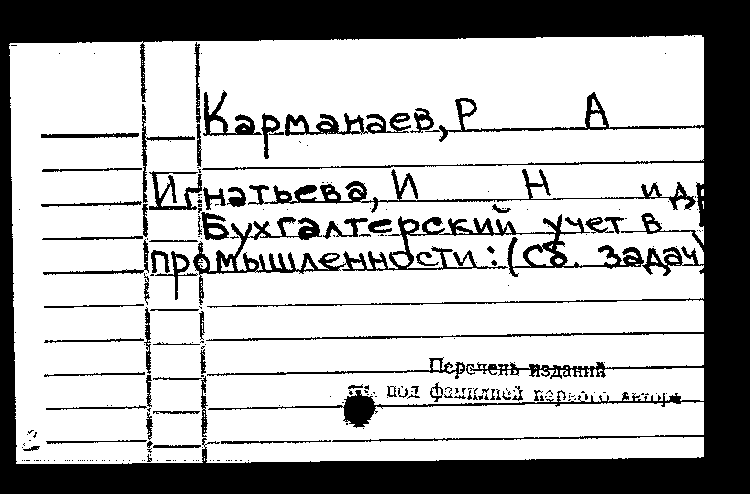 Карманаев, Р А
Игнатьева, И Н и др
Бухгалтерский учет в
промышленности: (Сб. задач)
Перечень изданий
под фамилией первого автора